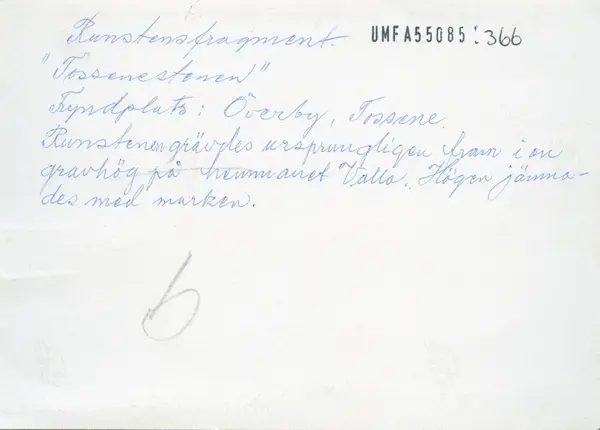 Runstensfragment. UMFA55085:366
"Tossenestenen"
Fyndplats: Överby, Tossene.
Runstenen grävdes ursprungligen fram i en
gravhög på hemmanet Valla. Högen jämna-
des med marken.
6